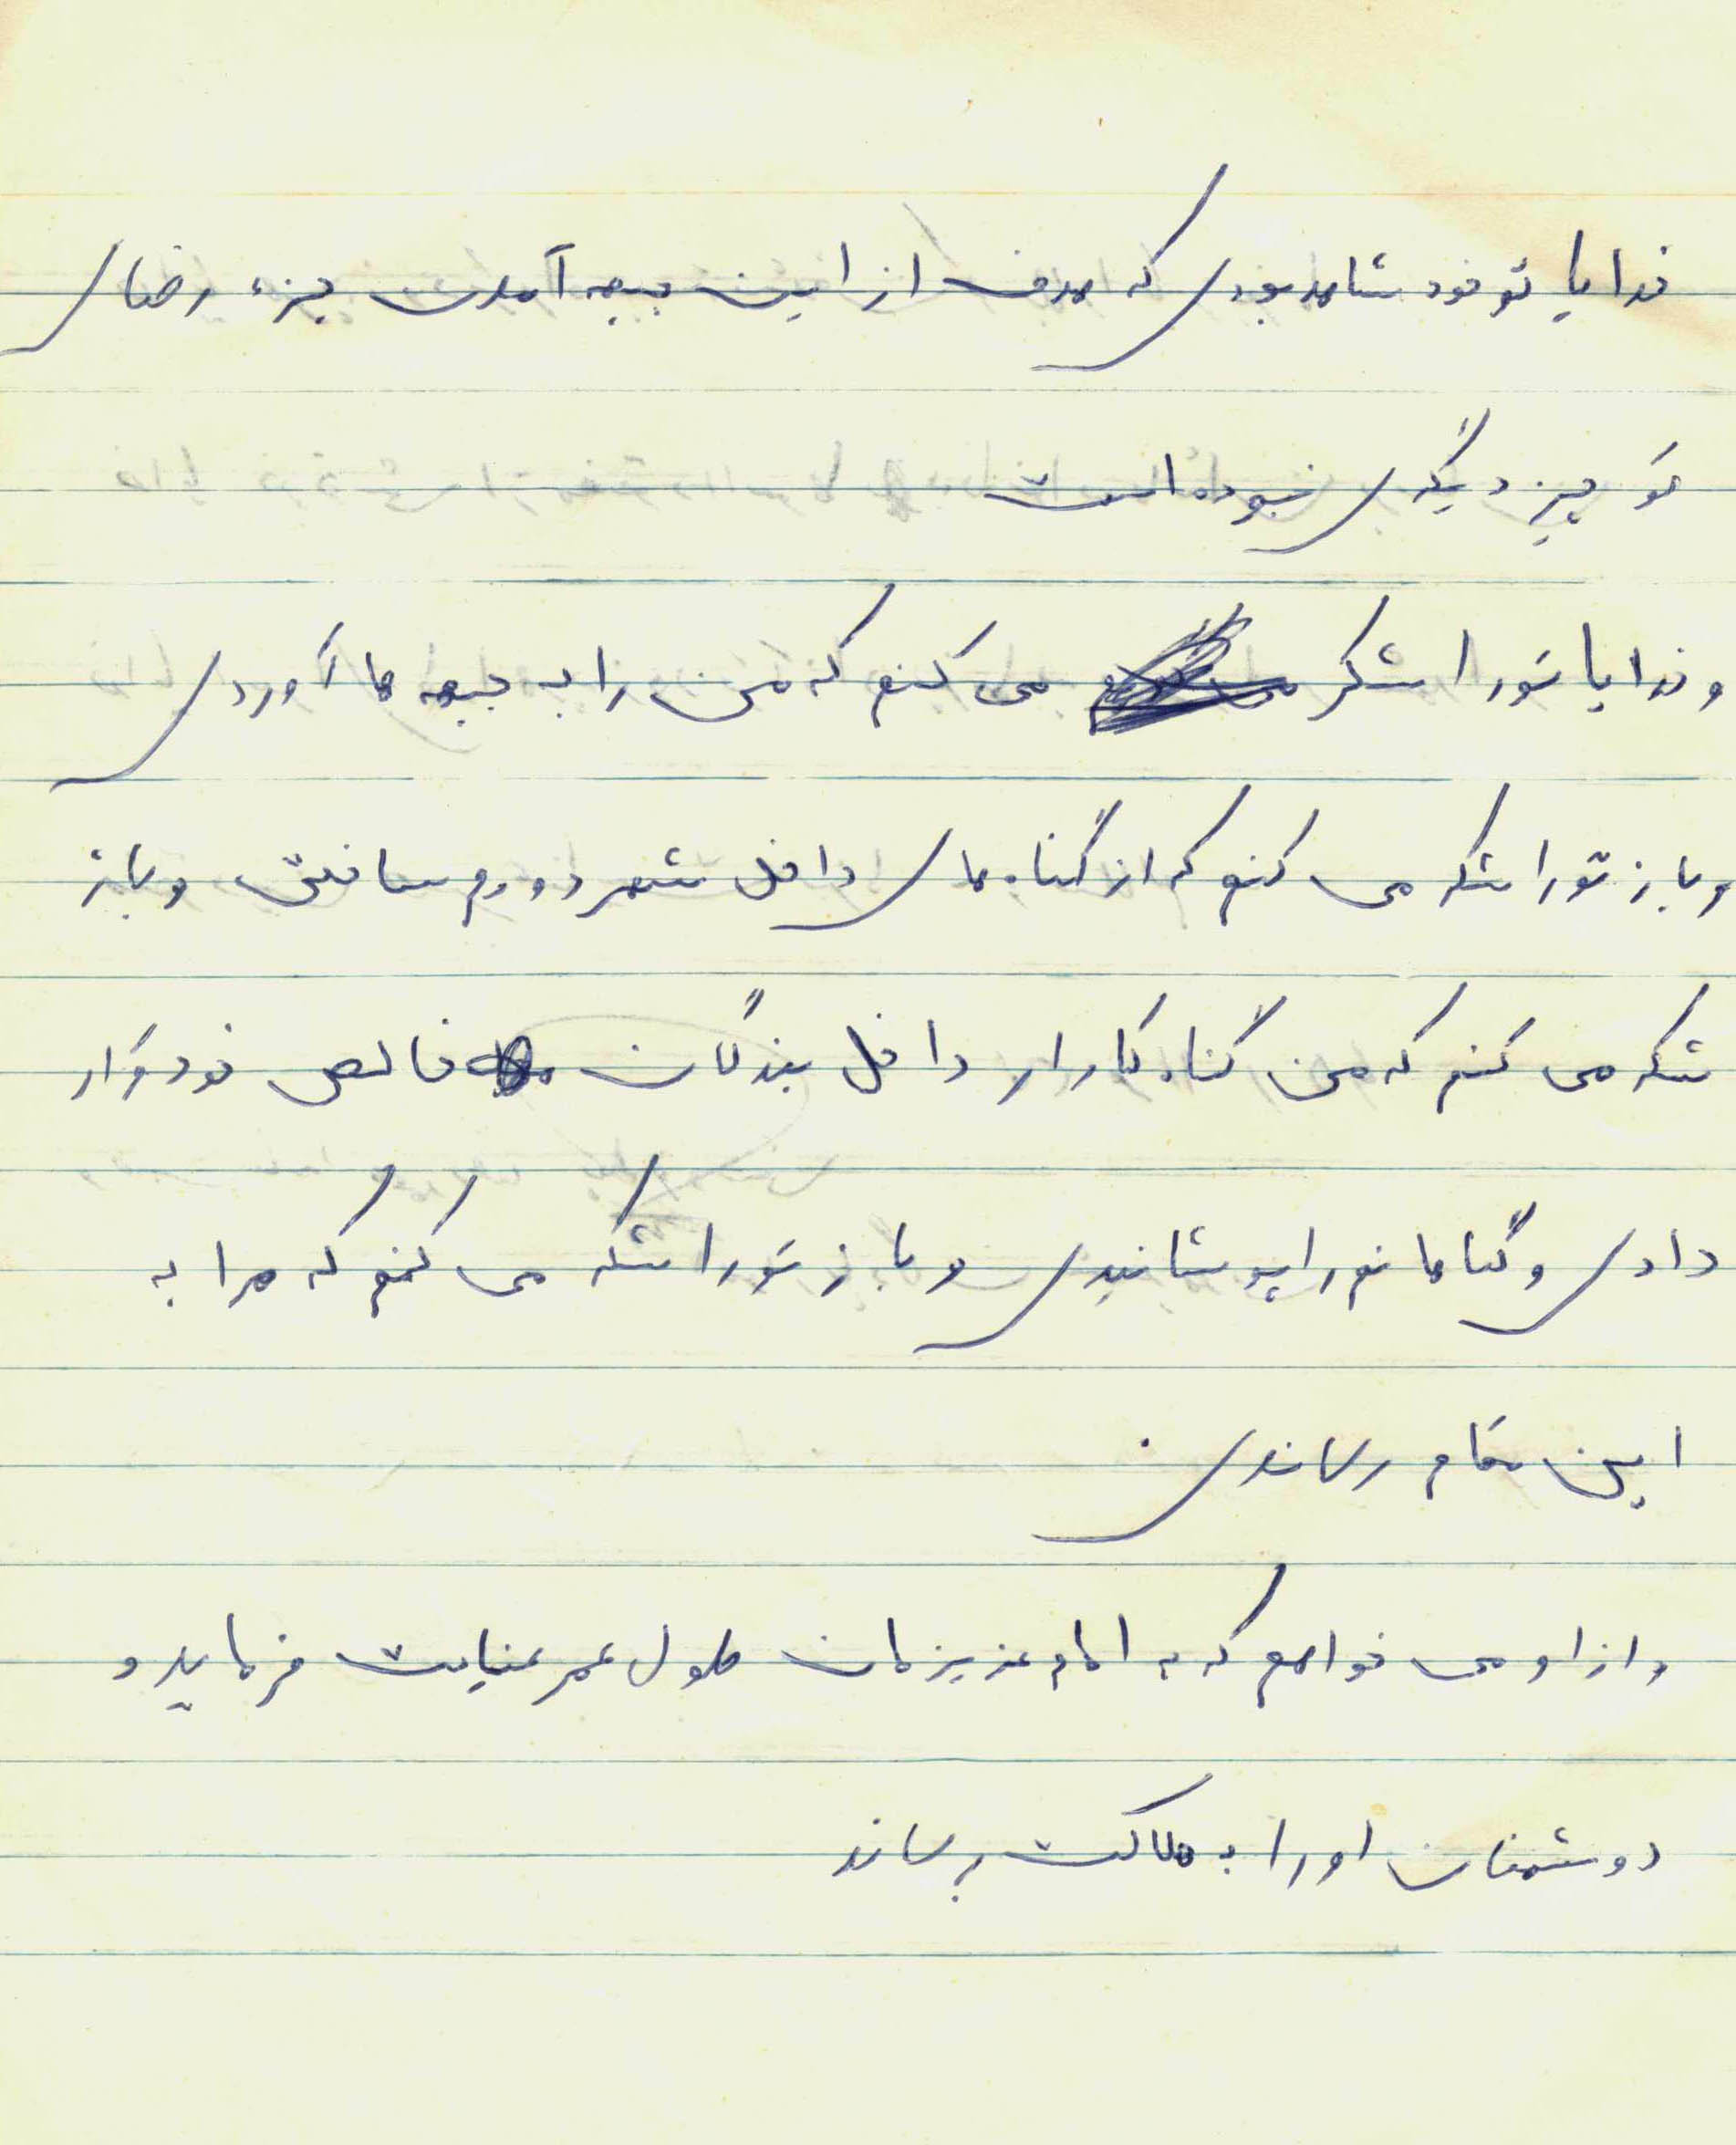 خدایا تو خود شاهد بودی که هدف از این جبهه آمدن جزء رضای
تو چیز دیگری نبوده است
و خدایا تو را شکر می کنم که من را به جبهه ها آوردی
و باز تو را شکر می کنم که از گناه های داخل شهر دورم ساختی و باز
شکر می کنم که من گناه کار را داخل بندگان خالص خود قرار
دادی و گناهانم را پوشاندی و باز تو را شکر می کنم که مرا به
این مقام رساندی.
و از او می خواهم که به امام عزیزمان طول عمر عنایت فرماید و
دوشمنان او را به هلاکت برساند